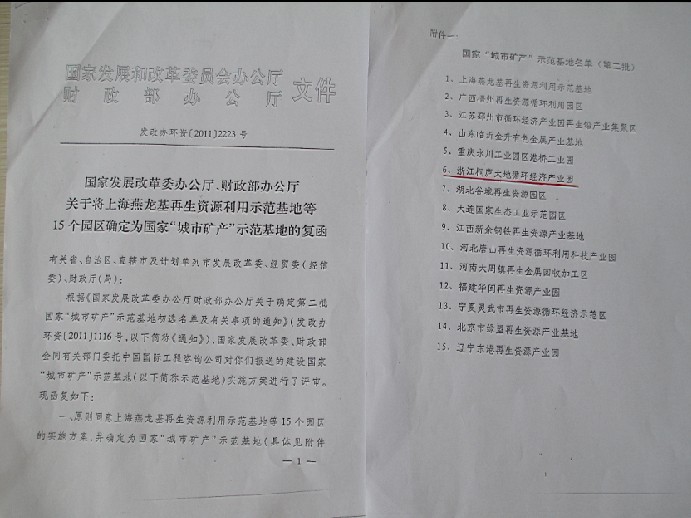 国家发展和改革委员会办公厅
财政部办公厅
文件
发改办环资[2011]2223号
国家发展改革委办公厅、财政部办公厅
关于将上海燕龙基再生资源利用示范基地等
15个园区确定为国家“城市矿产”示范基地的复函
有关省、自治区、直辖市及计划单列市发展改革委、经贸委(经信
委)、财政厅(局):
根据《国家发展改革委办公厅财政部办公厅关于确定第二批
国家“城市矿产”示范基地初选名单及有关事项的通知》(发改办
环资[2011]1116号,以下简称《通知》),国家发展改革委、财政部
会同有关部门委托中国国际工程咨询公司对你们报送的建设国家
“城市矿产”示范基地(以下简称示范基地)实施方案进行了评审。
现函复如下:
一、原则同意上海燕龙基再生资源利用示范基地等15个园区
的实施方案,并确定为国家“城市矿产”示范基地(具体见附件
—1—
附件一:
国家“城市矿产”示范基地名单(第二批)
1、上海燕龙基再生资源利用示范基地
2、广西梧州再生资源循环利用园区
3、江苏邳州市循环经济产业园再生铅产业集聚区
4、山东临沂金升有色金属产业基地
5、重庆永川工业园区港桥工业园
6、浙江桐庐大地循环经济产业园
7、湖北谷城再生资源园区
8、大连国家生态工业示范园区
9、江西新余钢铁再生资源产业基地
10、河北唐山再生资源循环利用科技产业园
11、河南大周镇再生金属回收加工区
12、福建华闽再生资源产业园
13、宁夏灵武市再生资源循环经济示范区
14、北京市绿盟再生资源产业基地
15、辽宁东港再生资源产业园